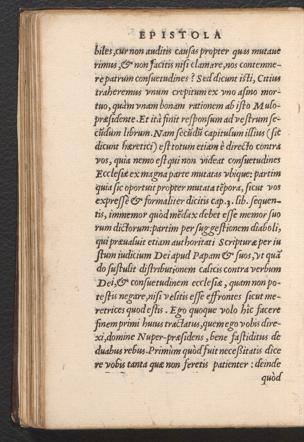 EPISTOLA
biles, cur non auditis causas propter quas mutaue
rimus, & non facitis nisi clamare, nos contemne-
re patrum consuetudines? Sed dicunt isti, Citius
traheremus vnum crepitum ex vno asino mor-
tuo, quàm vnam bonam rationem ab isto Mulo-
præsidente. Et ità finit responsum ad vestrum se-
cūdum librum. Nam secūdū capitulum illius (sic
dicunt hæretici) est totum etiam è directo contra
vos, quia nemo est qui non videat consuetudines
Ecclesiæ ex magna parte mutatas vbique: partim
quia sic oportuit propter mutata tēpora, sicut vos
expressè & formaliter dicitis cap. 3. lib. sequen-
tis, immemor quòd mēdax debet esse memor suo
rum dictorum: partim per suggestionem diaboli,
qui præualuit etiam authoritati Scripturæ per iu
stum iudicium Dei apud Papam & suos, vt quā
do sustulit distributionem calicis contra verbum
Dei, & consuetudinem ecclesiæ, quam non po-
testis negare, nisi velitis esse effrontes sicut me-
retrices quod estis. Ego quoque volo hîc facere
finem primi huius tractatus, quem ego vobis dire-
xi, domine Nuper-præsidens, bene fastiditus de
duabus rebus. Primùm quòd fuit necessitatis dice
re vobis tanta quæ non feretis patienter: deinde
quòd